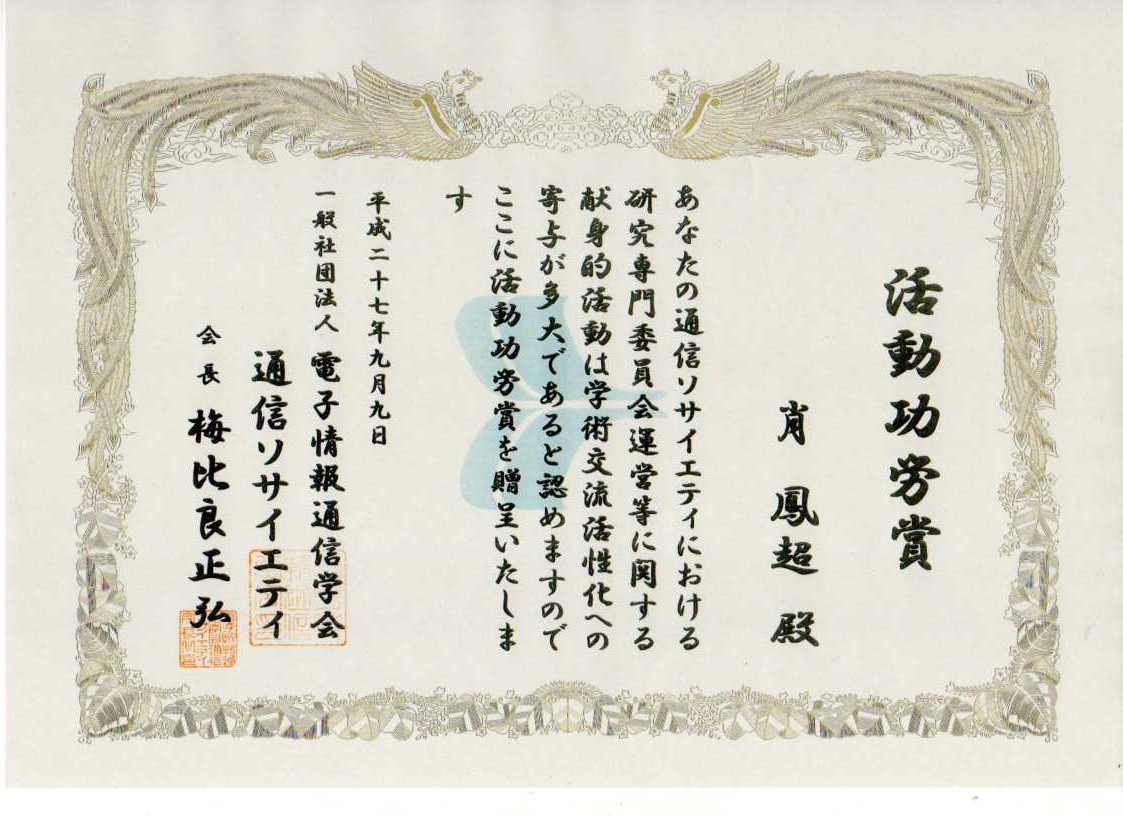 活動功労賞
肖 鳳超 殿
あなたの通信ソサイエティにおける
研究専門委員会運営等に関する
献身的活動は学術交流活性化への
寄与が多大であると認めますので
ここに活動功労賞を贈呈いたしま
す
平成二十七年九月九日
一般社団法人 電子情報通信学会
通信ソサイエティ
会長 梅比良正弘